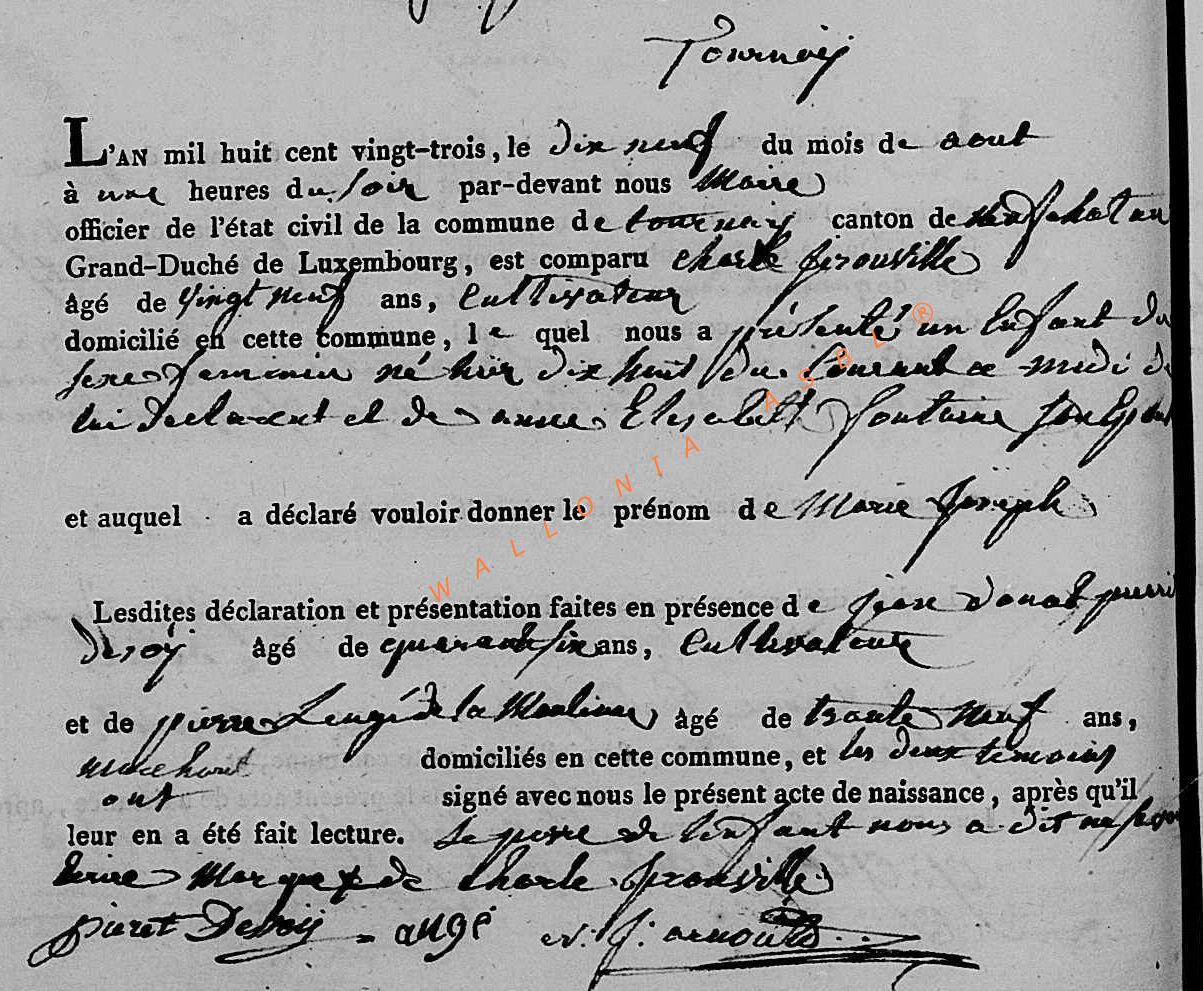 Tournay
L'AN mil huit cent vingt-trois, le dix neuf du mois de aout
à une heures du soir par-devant nous Maire
officier de l'état civil de la commune de tournay canton de neufchateau
Grand-Duché de Luxembourg, est comparu Charle
âgé de vingt neuf ans, Cultivateur
domicilié en cette commune, le quel nous a présenté un Enfant du
sexe feminin né hier dix huit du Courant a midi de
lui declarent et de anne Elisabett fontaine
et auquel a déclaré vouloir donner le prénom de Marie Joseph
Lesdites déclaration et présentation faites en présence de jean donat
âgé de quarante six ans, Cultivateur
et de pierre de la âgé de trante neuf ans,
marchant domiciliés en cette commune, et les deux temoins
ont signé avec nous le présent acte de naissance, après qu'il
leur en a été fait lecture. Le pere de l'enfant nous a dit
Marque x de Charle
pieret = augé
WALLONIA ASBL ®